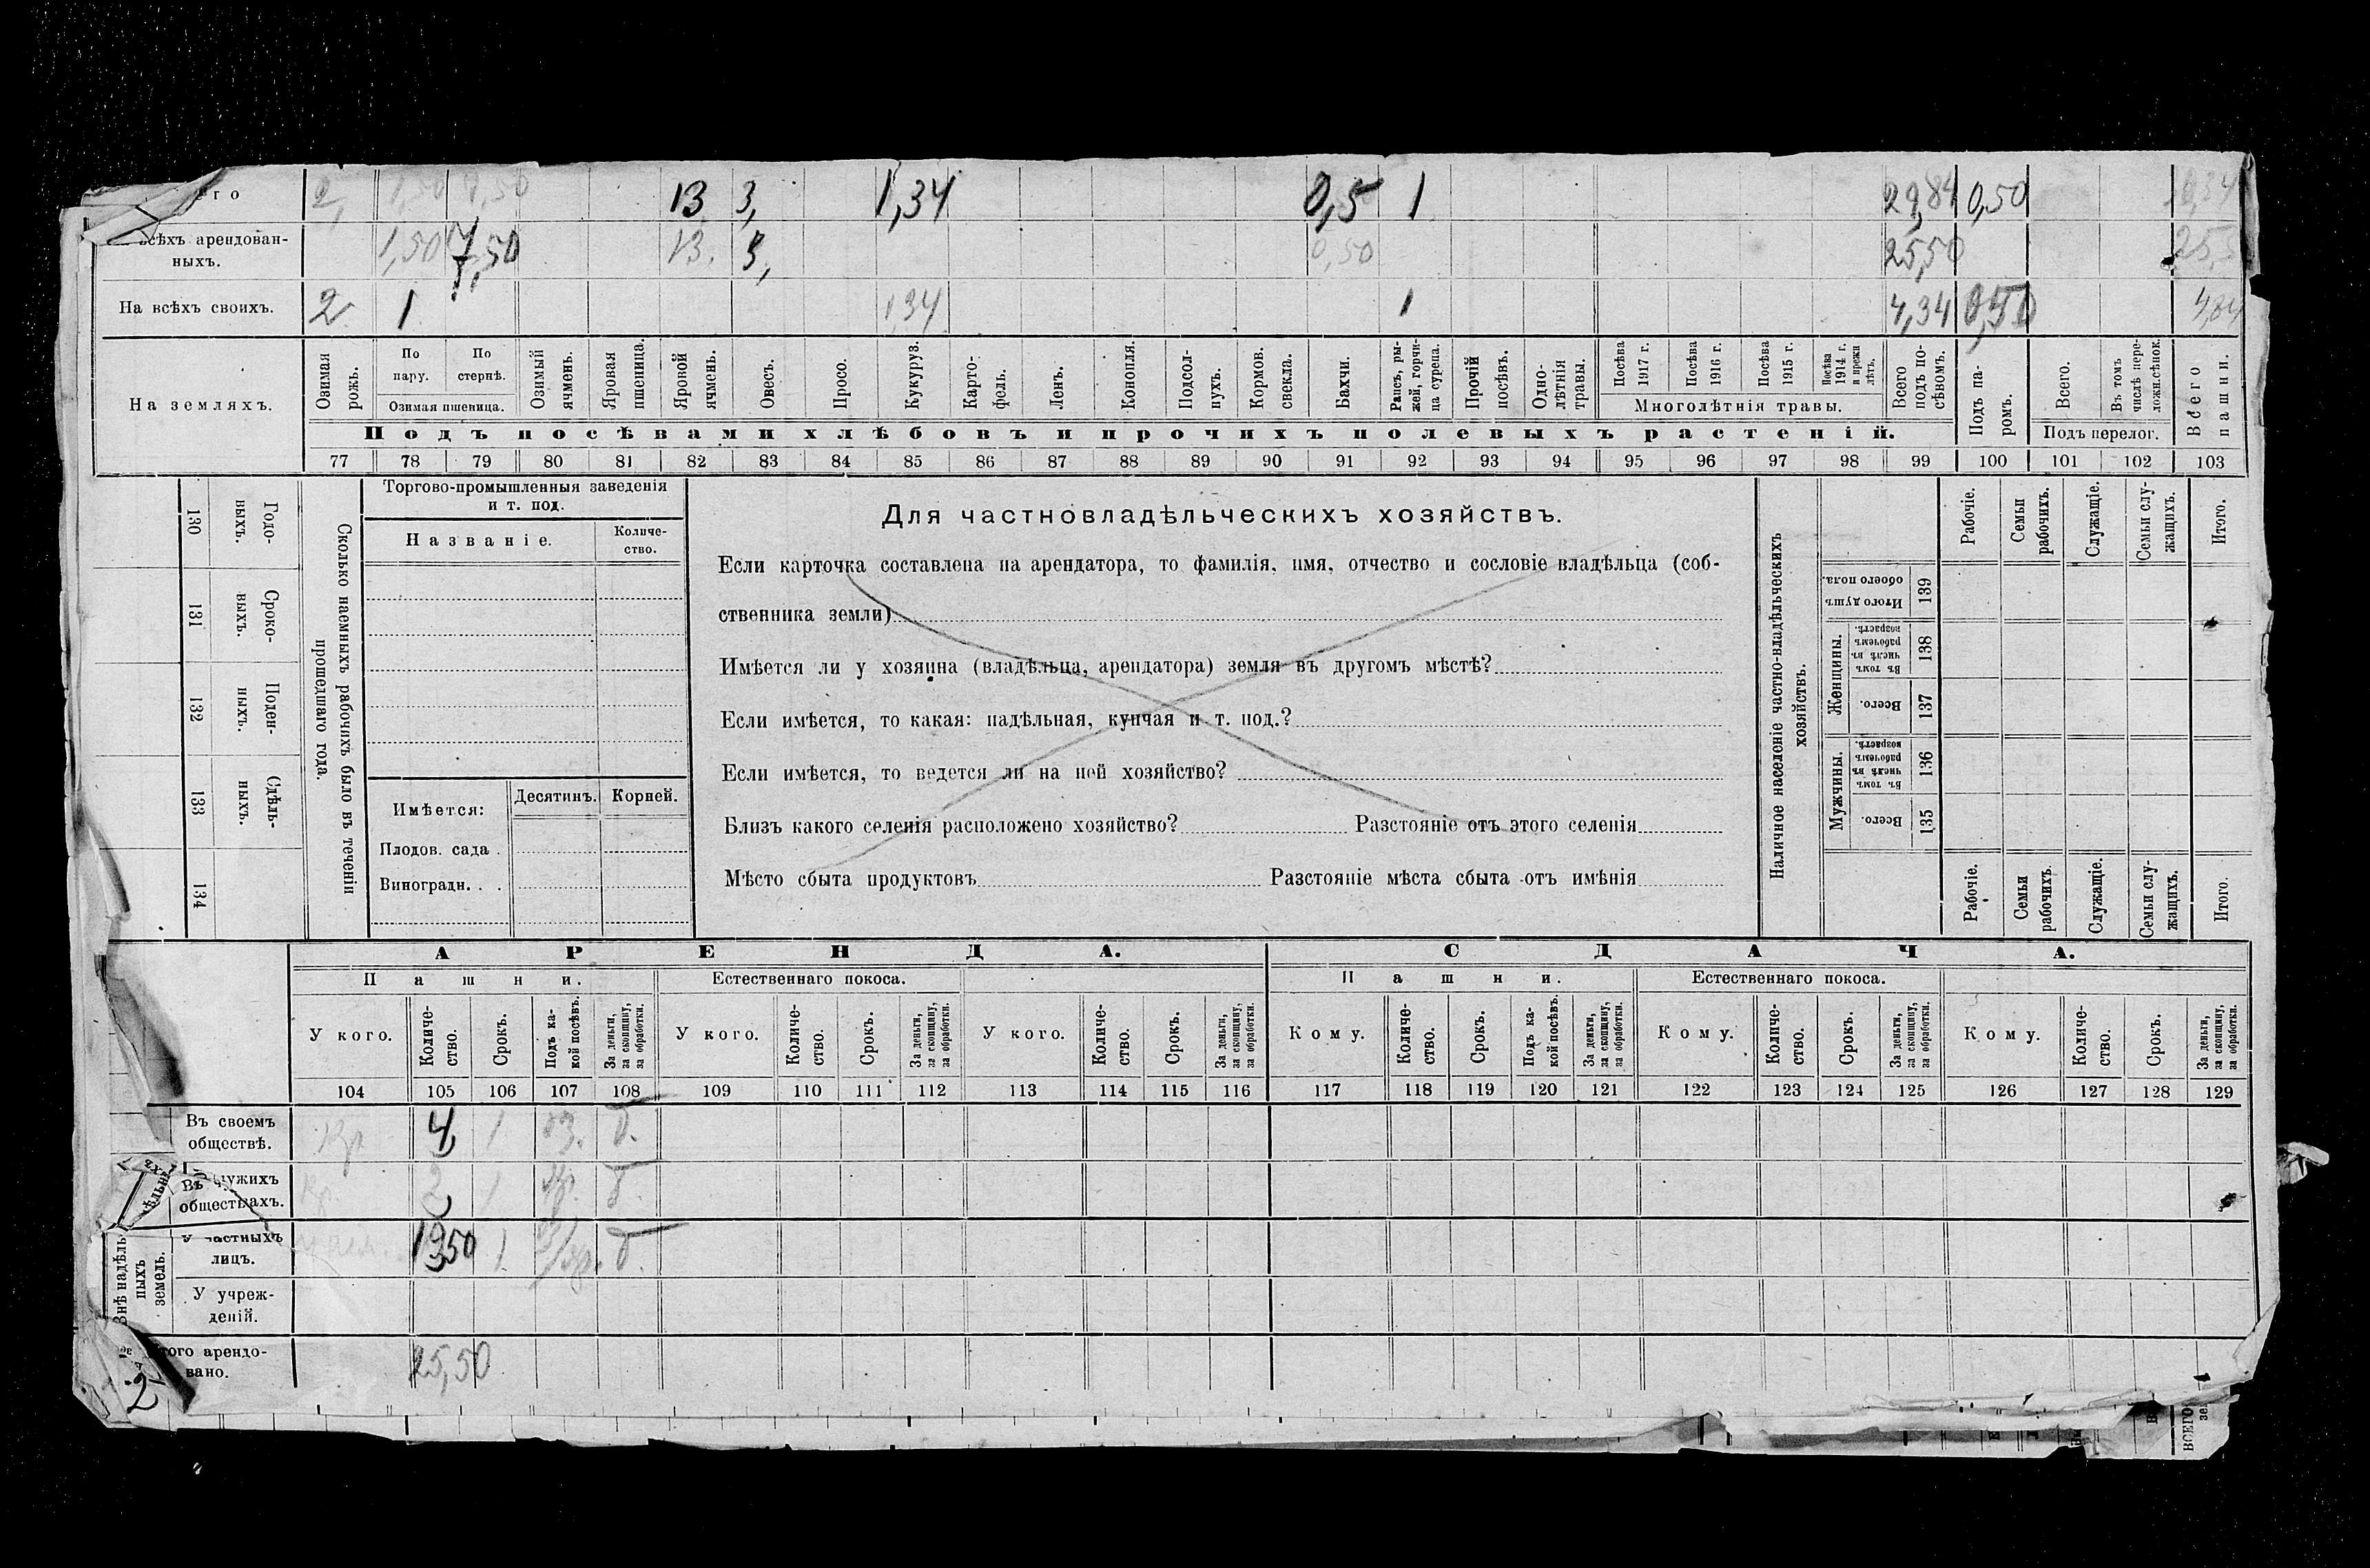 его 2, 1,50 7,50 13 3, 1,34 0,5 1 29,84 0,50
всѣхъ арендован-
ныхъ. 1,50 7,50 13. 3, 0,50 25,50
На всѣхъ своихъ. 2 1 1,34 1 4,34 0,50 4,84
На земляхъ.
Озимая рожь.
По пару.
По стернѣ.
Озимая пшеница.
Озимый ячмень.
Яровая пшеница.
Яровой ячмень.
Овесъ.
Просо.
Кукуруз.
Карто-
фель.
Ленъ.
Конопля.
Подсол-
нухъ.
Кормов.
свекла.
Бахчи.
Рапсъ, ры-
жей, горчи-
ца сурепа.
Прочій
посѣвъ.
Одно-
лѣтнія
травы.
Посѣва
1917 г.
Посѣва
1916 г.
Посѣва
1915 г.
Посѣва
1914 г.
и прежн
лѣтъ.
Многолѣтнія травы.
Всего
подъ по-
сѣвомъ.
Подъ па-
ромъ.
Всего.
Въ томъ
числѣ пере-
ложн.сѣнок.
Подъ перелог.
Всего
пашни.
Подъ посѣвами хлѣбовъ и прочихъ полевыхъ растеній.
77 78 79 80 81 82 83 84 85 86 87 88 89 90 91 92 93 94 95 96 97 98 99 100 101 102 103
130 Годо-
ныхъ.
131 Сроко-
выхъ.
132 Поден-
ныхъ.
133 Сдѣль-
ныхъ.
134
Сколько наемныхъ рабочихъ было въ теченіи
прошедшаго года.
Торгово-промышленныя заведенія
и т. под.
Названіе. Количе-
ство.
Имѣется: Десятинъ. Корней.
Плодов. сада .
Виноградн. . .
Для частновладѣльческихъ хозяйствъ.
Если карточка составлена на арендатора, то фамилія, имя, отчество и сословіе владѣльца (соб-
ственника земли)
Имѣется ли у хозяина (владѣльца, арендатора) земля въ другомъ мѣстѣ?
Если имѣется, то какая: надѣльная, купчая и т. под.?
Если имѣется, то ведется ли на ней хозяйство?
Близъ какого селенія расположено хозяйство? Разстояніе отъ этого селенія
Мѣсто сбыта продуктовъ Разстояніе мѣста сбыта отъ имѣнія
Наличное населеніе частно-владѣльческихъ
хозяйствъ.
Рабочіе.
Семьи
рабочихъ.
Служащіе.
Семьи слу-
жащихъ.
Итого.
Итого душъ
обоего пола.
139
Женщины.
Въ томъ
числѣ въ
рабочемъ
возрастѣ.
138
Всего.
137
Мужчины.
Въ томъ
числѣ въ
рабочемъ
возрастѣ.
136
Всего.
135
Рабочіе.
Семьи
рабочихъ.
Служащіе.
Семьи слу-
жащихъ.
Итого.
АРЕНДА. СДАЧА.
Пашни. Естественнаго покоса. Пашни. Естественнаго покоса.
У кого.
Количе-
ство.
Срокъ.
Подъ ка-
кой посѣвъ.
За деньги,
за скопщину,
за обработки.
У кого.
Количе-
ство.
Срокъ.
За деньги,
за скопщину,
за обработки.
У кого.
Количе-
ство.
Срокъ.
За деньги,
за скопщину,
за обработки.
Кому.
Количе-
ство.
Срокъ.
Подъ ка-
кой посѣвъ.
За деньги,
за скопщину,
за обработки.
Кому.
Количе-
ство.
Срокъ.
За деньги,
за скопщину,
за обработки.
Кому.
Количе-
ство.
Срокъ.
За деньги,
за скопщину,
за обработки.
104 105 106 107 108 109 110 111 112 113 114 115 116 117 118 119 120 121 122 123 124 125 126 127 128 129
Въ своемъ
обществѣ. 4, 1 оз.
Въ чужихъ
обществахъ. 2 1
Внѣ надѣль-
ныхъ
земель.
У частныхъ
лицъ. 1950 1
У учреж-
деній.
того арендо-
вано. 25,50
2
ВСЕГО